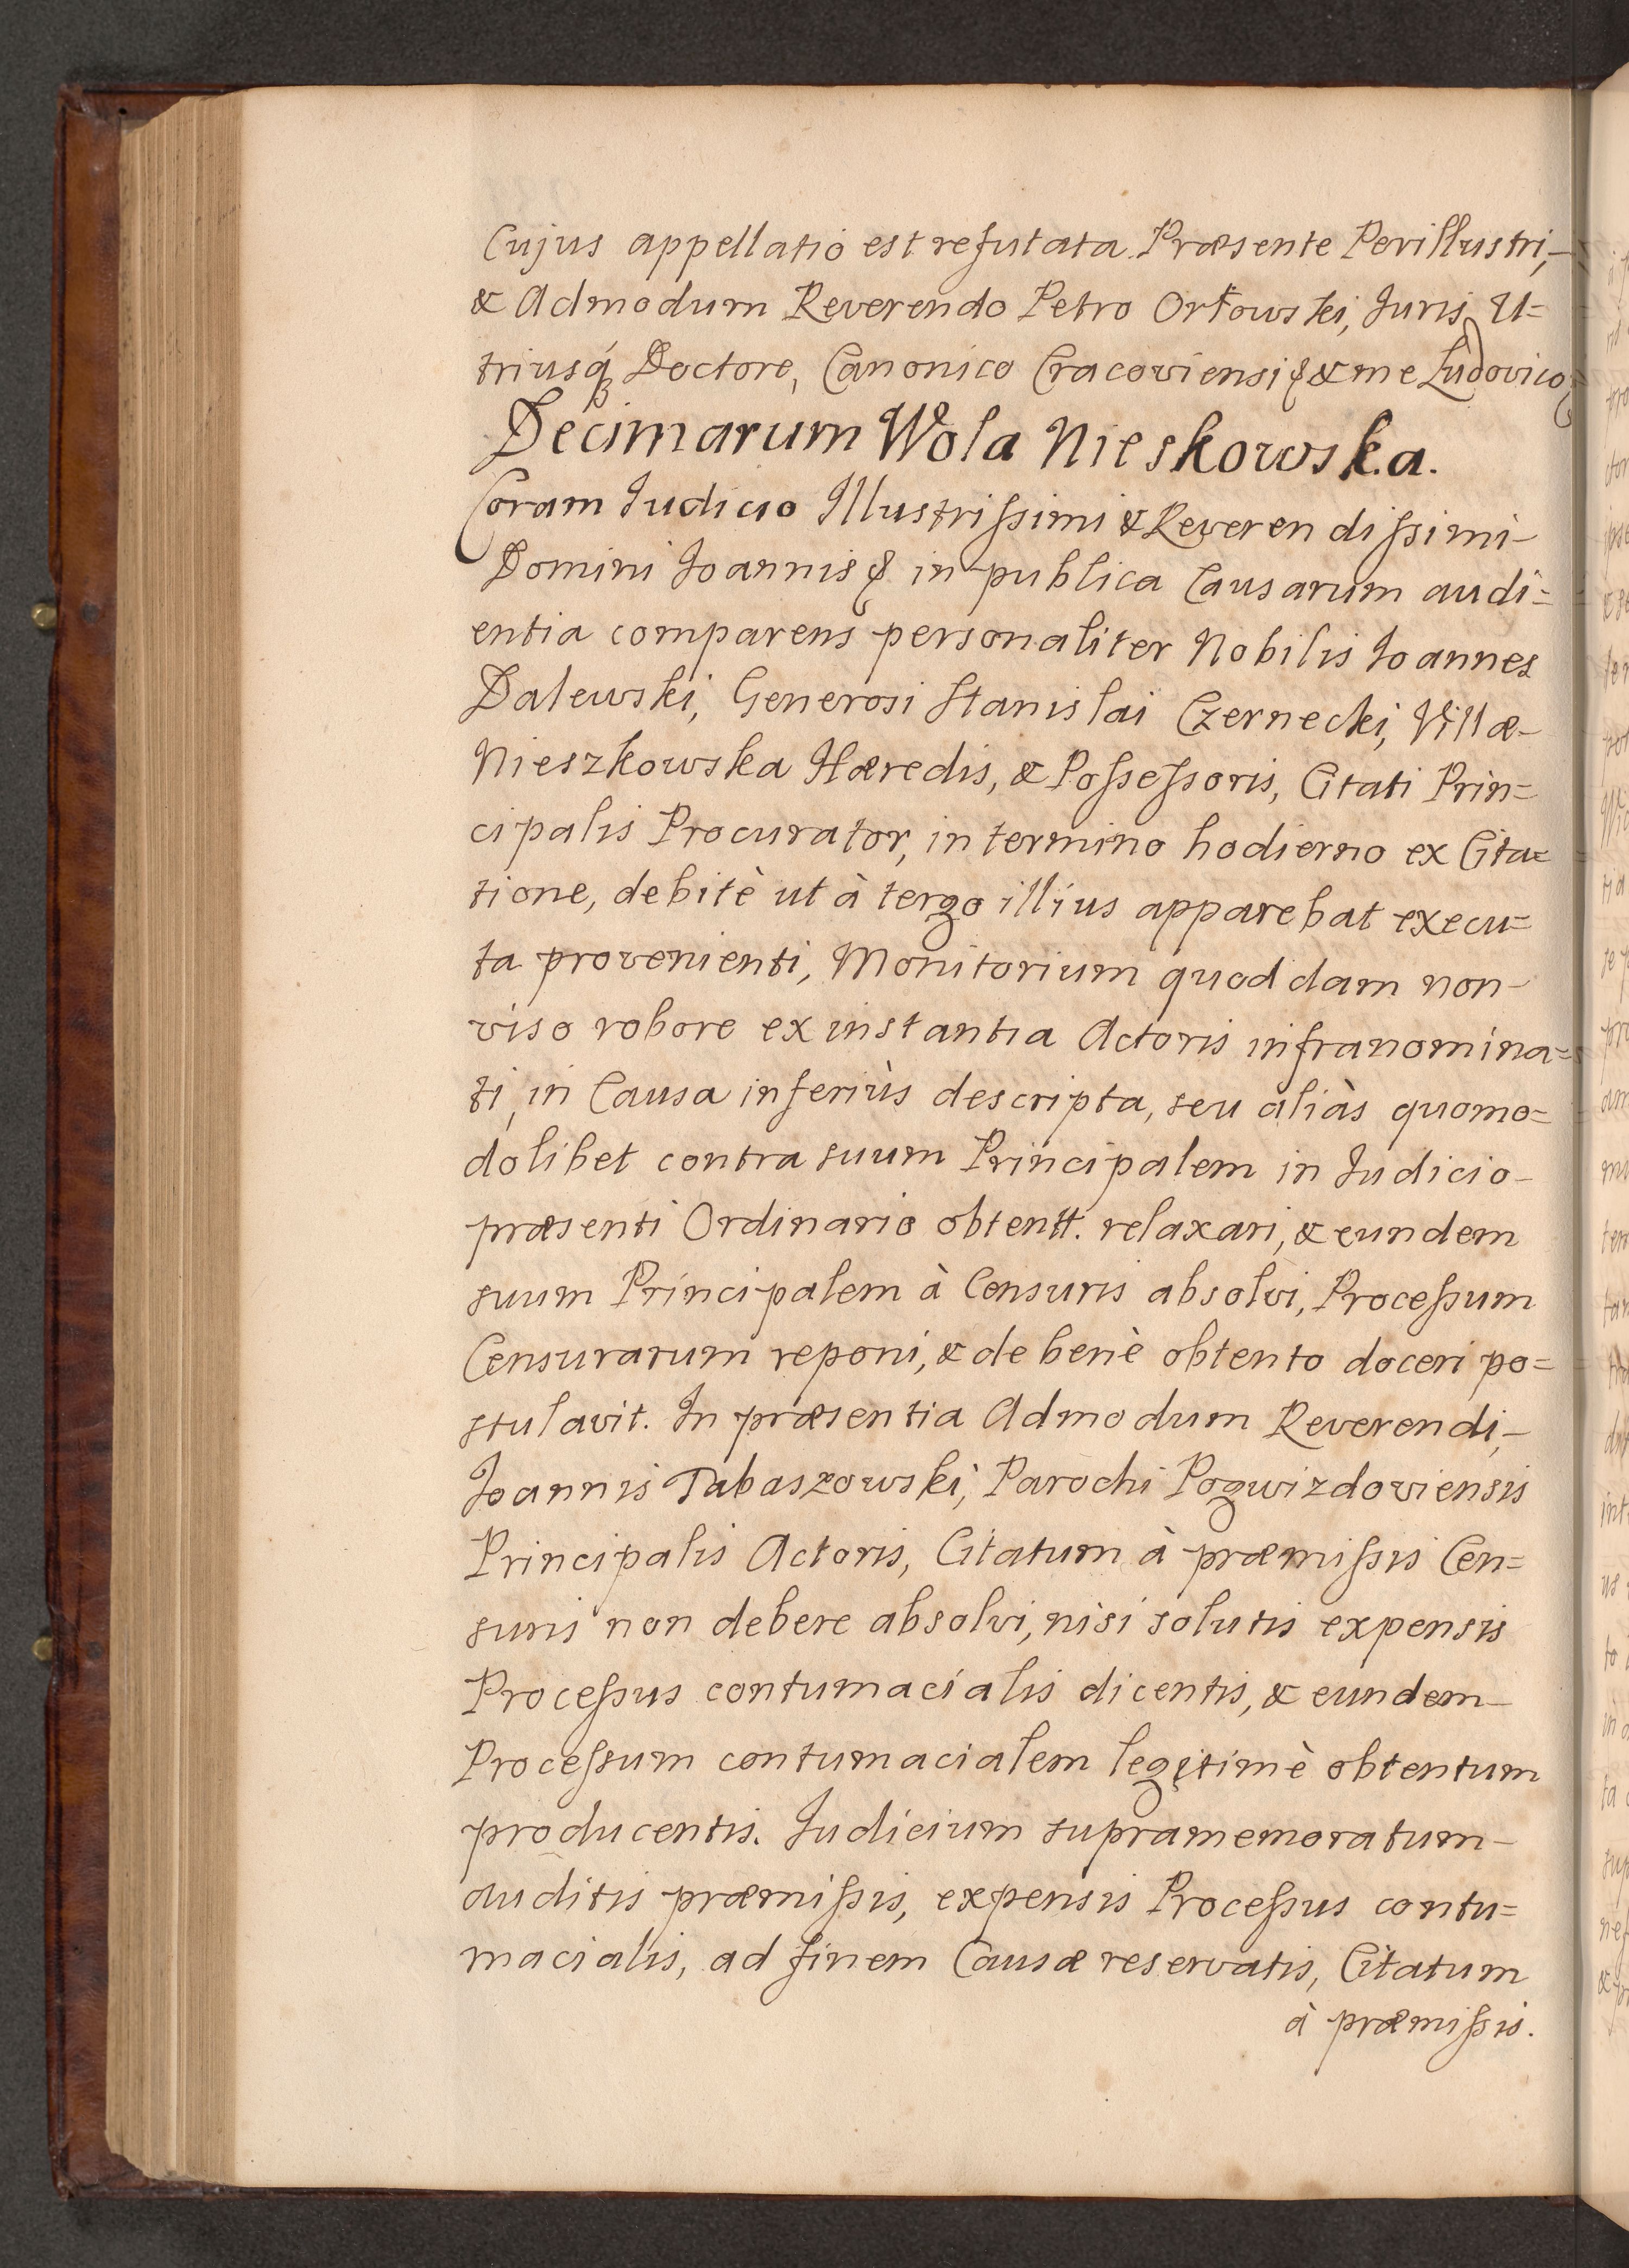 Cujus appellatio est refutata. Præsente Perillustri,-
& Admodum Reverendo Petro Orłowski, Juris U=
triusq́ Doctore, Canonico Cracoviensi & me Ludovico
Decimarum Wola Nieskowska.
Coram Judicio Illustrißimi & Reverendißimi-
Domini Joannis in publica Causarum audi=
entia comparens personaliter Nobilis Joannes
Dalewski, Generosi Stanislai Czernecki, Villæ-
Nieszkowska Hæredis, & Poßeßoris, Citati Prin=
cipalis Procurator, in termino hodierno ex Cita=
tione, debitè ut à tergo illius apparebat execu=
ta provenienti, Monitorium quoddam non-
viso robore ex instantia Actoris infranomina=
ti, in Causa inferiùs descripta, seu aliàs quomo=
dolibet contra suum Principalem in Judicio-
præsenti Ordinario obtentt. relaxari, & eundem
suum Principalem à Censuris absolvi, Proceßum
Censurarum reponi, & de benè obtento doceri po=
stulavit. In præsentia Admodum Reverendi,-
Joannis Tabaszowski, Parochi Pogwizdoviensis
Principalis Actoris, Citatum à præmißis Cen=
suris non debere absolvi, nisi solutis expensis
Proceßus contumacialis dicentis, & eundem-
Proceßum contumacialem legitimè obtentum
producentis. Judicium supramemoratum-
auditis præmißis, expensis Proceßus contu=
macialis, ad finem Causæ reservatis, Citatum
à præmißis.